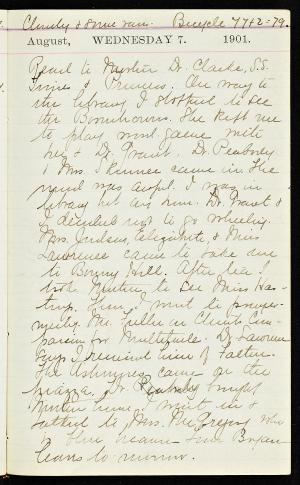 Cloudy & some rain. Bicycle 77+2=79.
August, WEDNESDAY 7. 1901.
Read to Mother Dr. Clarke, S.S.
Times & Princess. On way to
the library I stopped to see
the Bournhouns. She kept me
to play word game with
her & Dr. Grant. Dr. Peabody
& Mrs. Skinner came in. The
wind was awful. I was in
library but saw him. Dr. Grant &
I decided not to go wheeling.
Mrs. Judson, Elizabeth, & Miss
Lawrence came to take me
to Bonny Hill. After tea I
took Mother to see Miss Has-
trup. Then I went to prayer-
meeting. Mr. Fuller on Christ's Com-
passion for Multitude. Dr. Lawrence
says I remind him of Father.
The Ashmores came on the
piazza. Dr. Peabody brought
Mother home. I went in &
talked to Mrs. McGregory who
is blue because
leaves to-morrow.